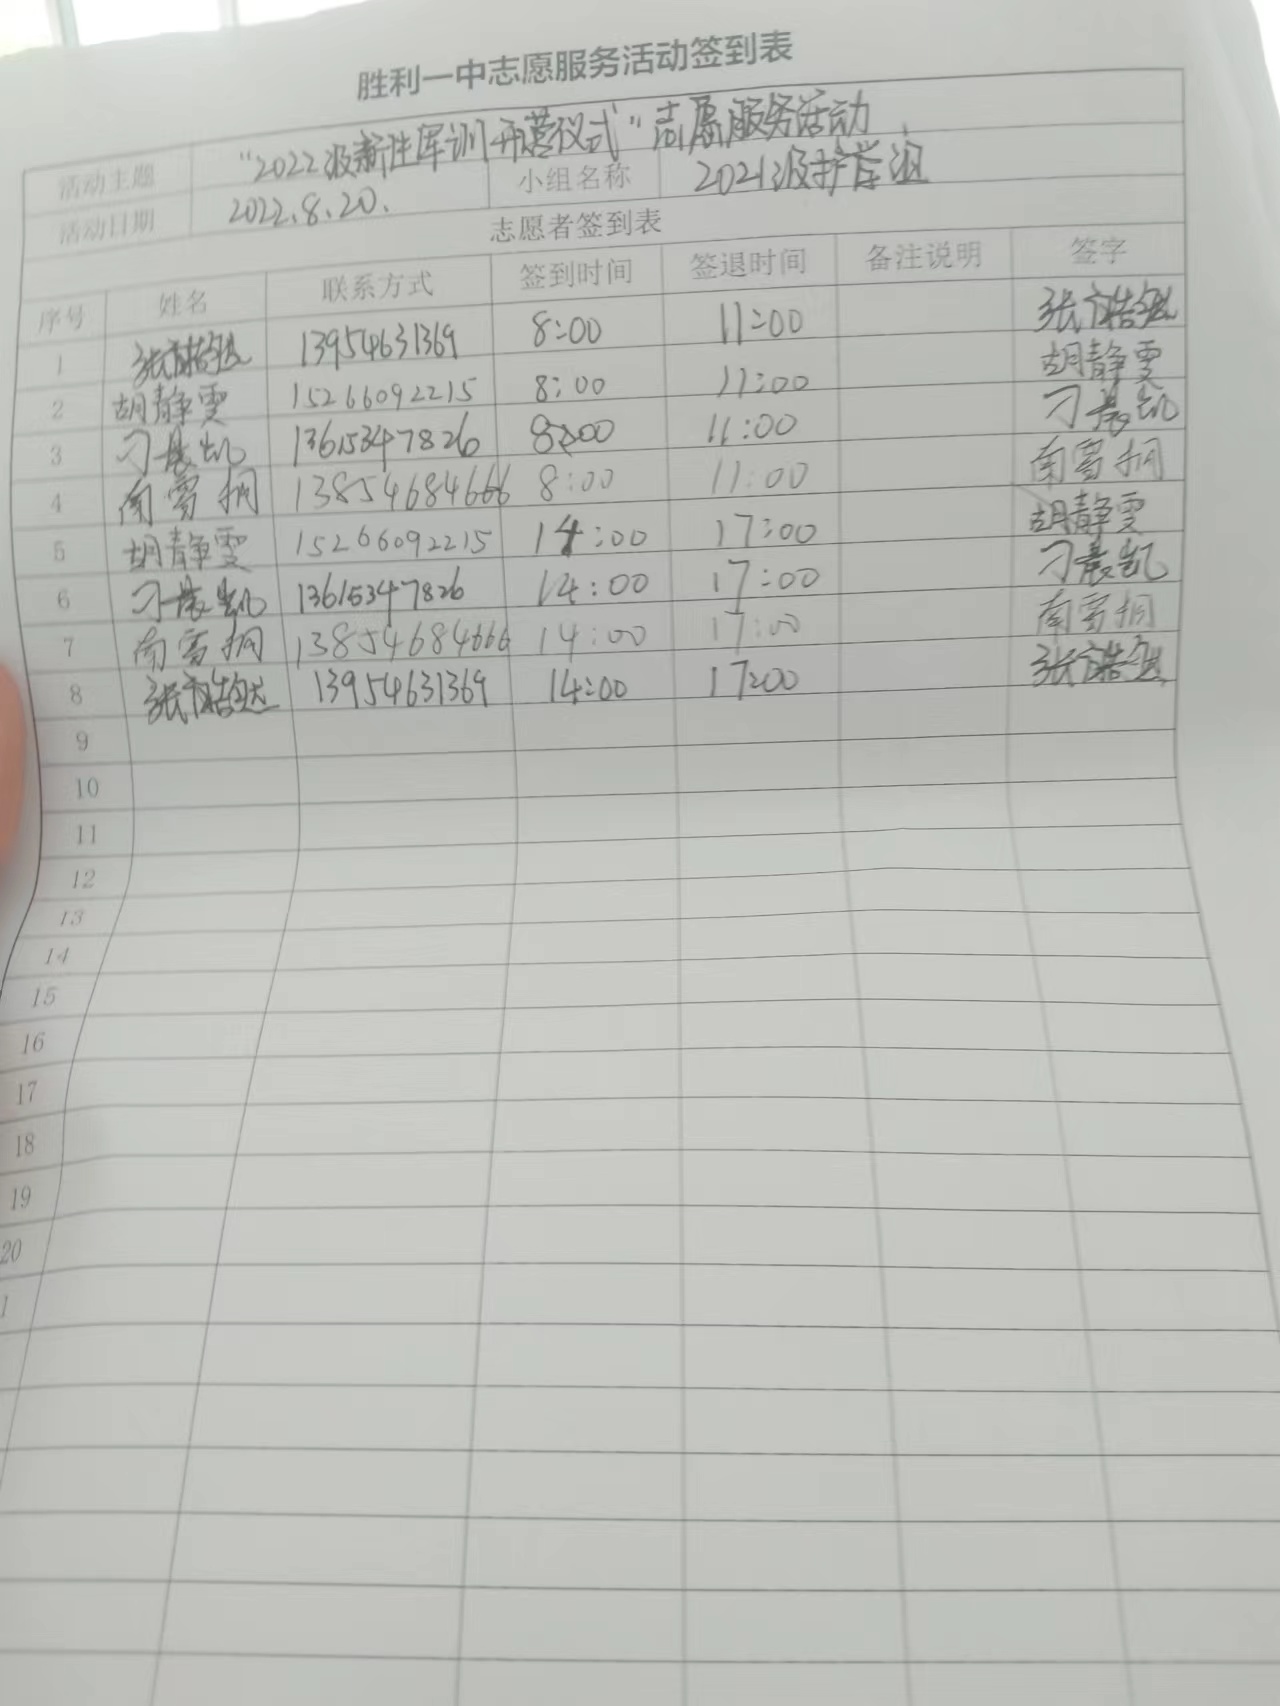 胜利一中志愿服务活动签到表
活动主题 "2022级新生军训开营仪式"志愿服务活动
活动日期 2022.8.20. 小组名称 2021级护学组
志愿者签到表
序号 姓名 联系方式 签到时间 签退时间 备注说明 签字
1 张 13954631369 8:00 11:00 张
2 胡静雯 15266092215 8:00 11:00 胡静雯
3 刁晨凯 13615347826 8:00 11:00 刁晨凯
4 南雪桐 13854684666 8:00 11:00 南雪桐
5 胡静雯 15266092215 14:00 17:00 胡静雯
6 刁晨凯 13615347826 14:00 17:00 刁晨凯
7 南雪桐 13854684666 14:00 17:00 南雪桐
8 张 13954631369 14:00 17:00 张
9
10
11
12
13
14
15
16
17
18
19
20
1